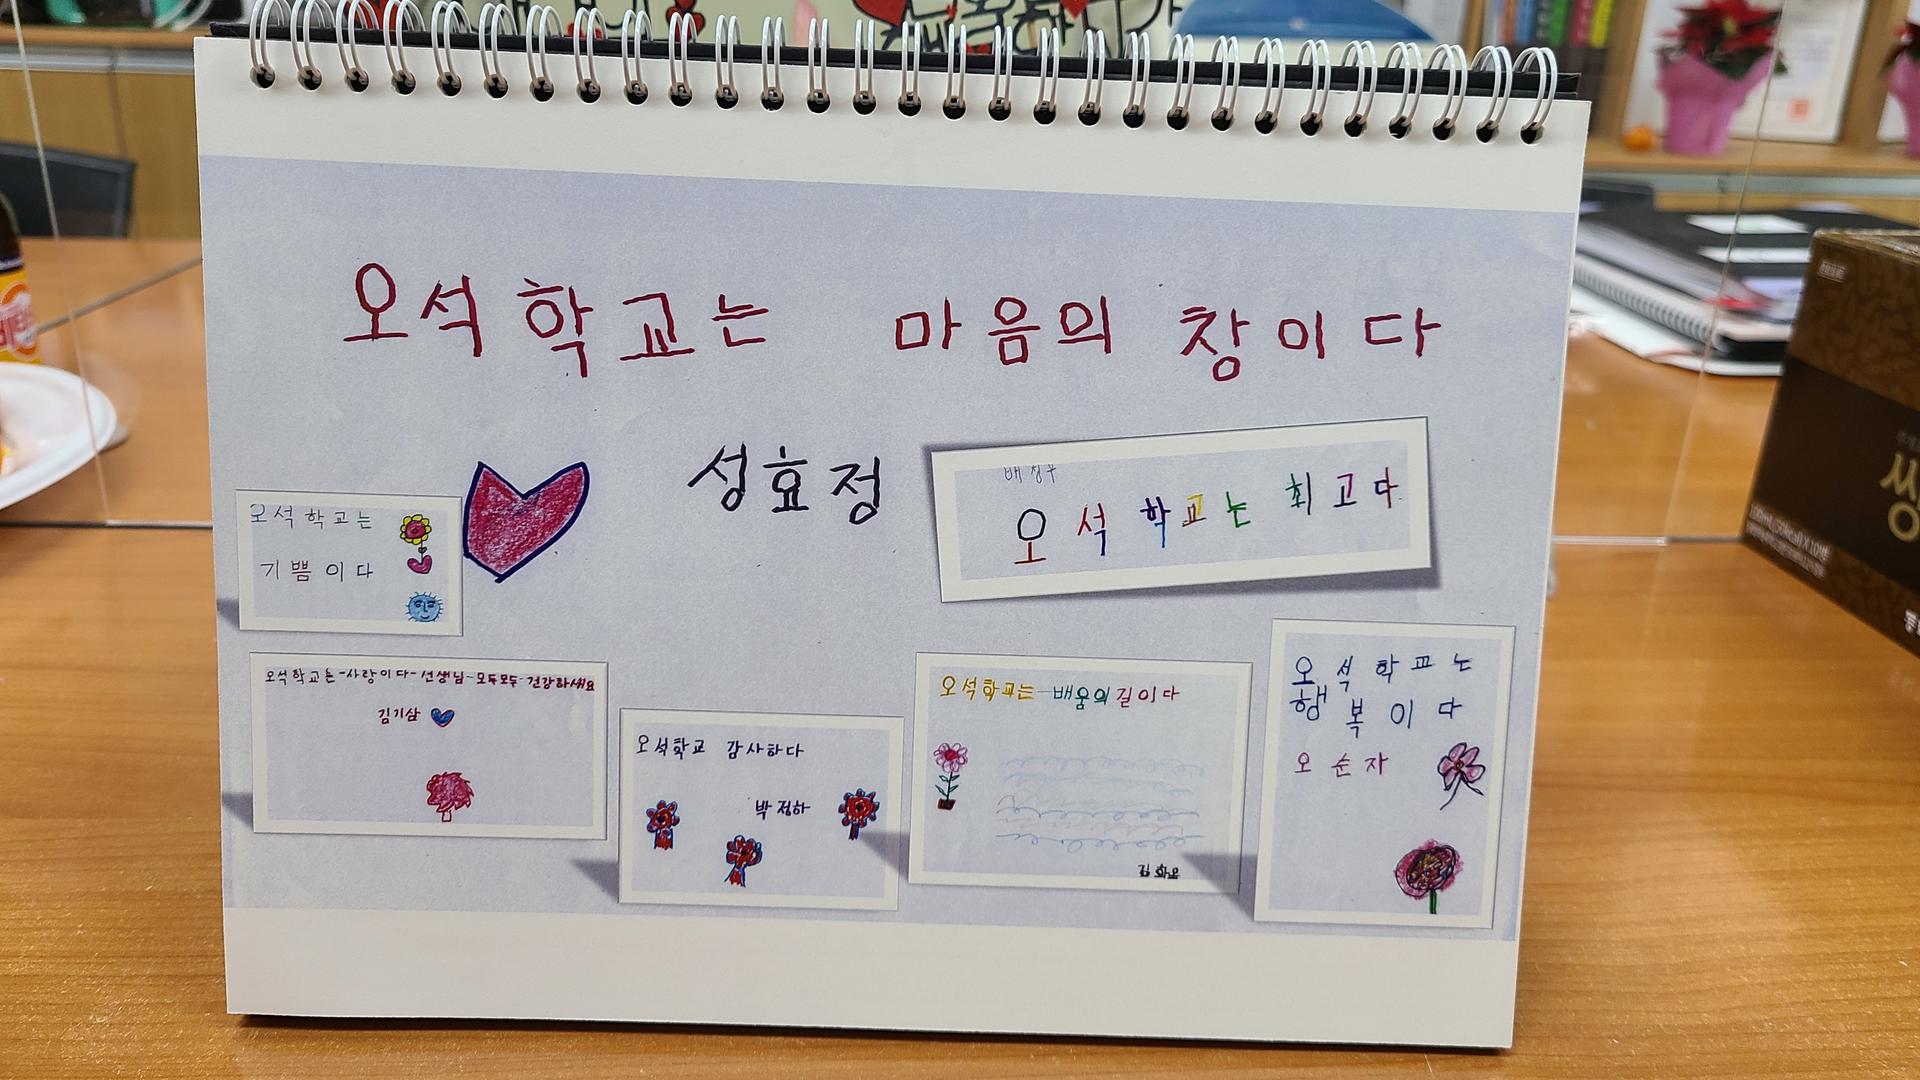 오석학교는 마음의 창이다
성효정
배정수
오석학교는 최고다
오석학교는
기쁨이다
오석학교는-사랑이다-선생님-모두모두-건강하세요
김기삼
오석학교 감사하다
박정하
오석학교는-배움의길이다
오석학교는
행복이다
오순자